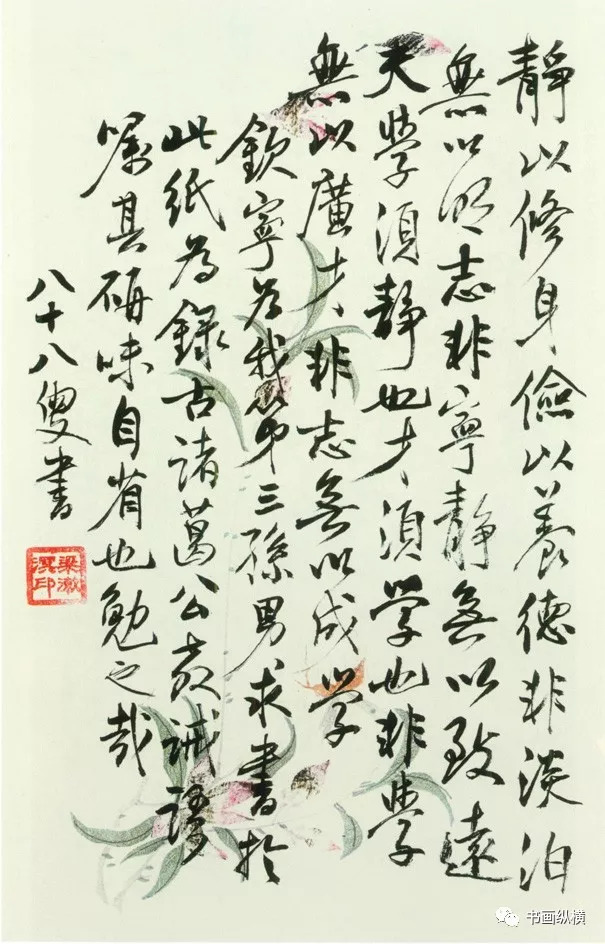 靜以修身儉以養德非淡泊
無以明志非寧靜無以致遠
夫學須靜也才須学也非學
無以廣才非志無以成学
欽寧為我第三孫男求書於
此紙為錄古諸葛公教誡語
囑其研味自省也勉之哉
八十八叟書
梁漱溟印
书画纵横